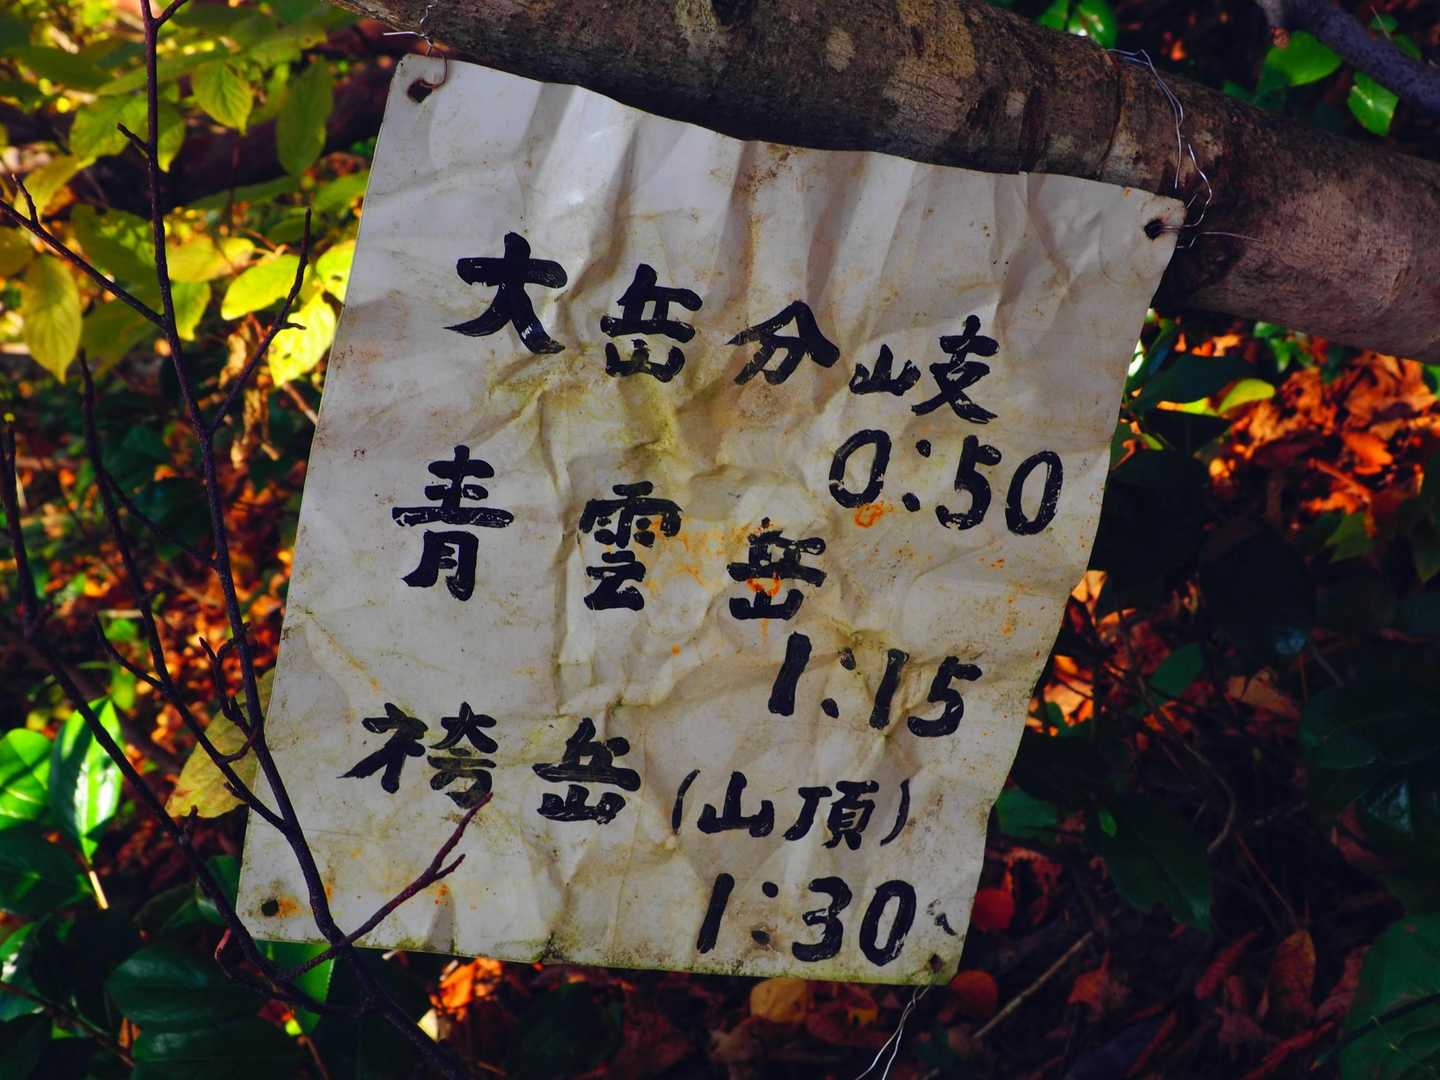 大岳分岐
0:50
青雲岳
1:15
袴岳(山頂)
1:30